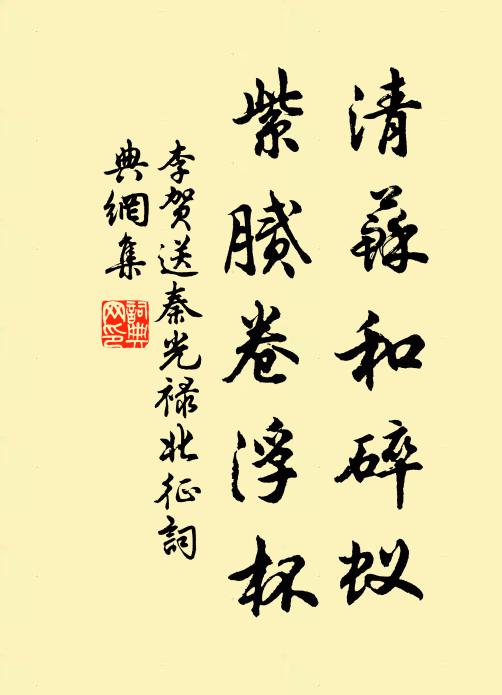 清蘇和碎蚁
紫膩卷浮杯
李賀送秦光祿北征詞
典網集
詞典
网印